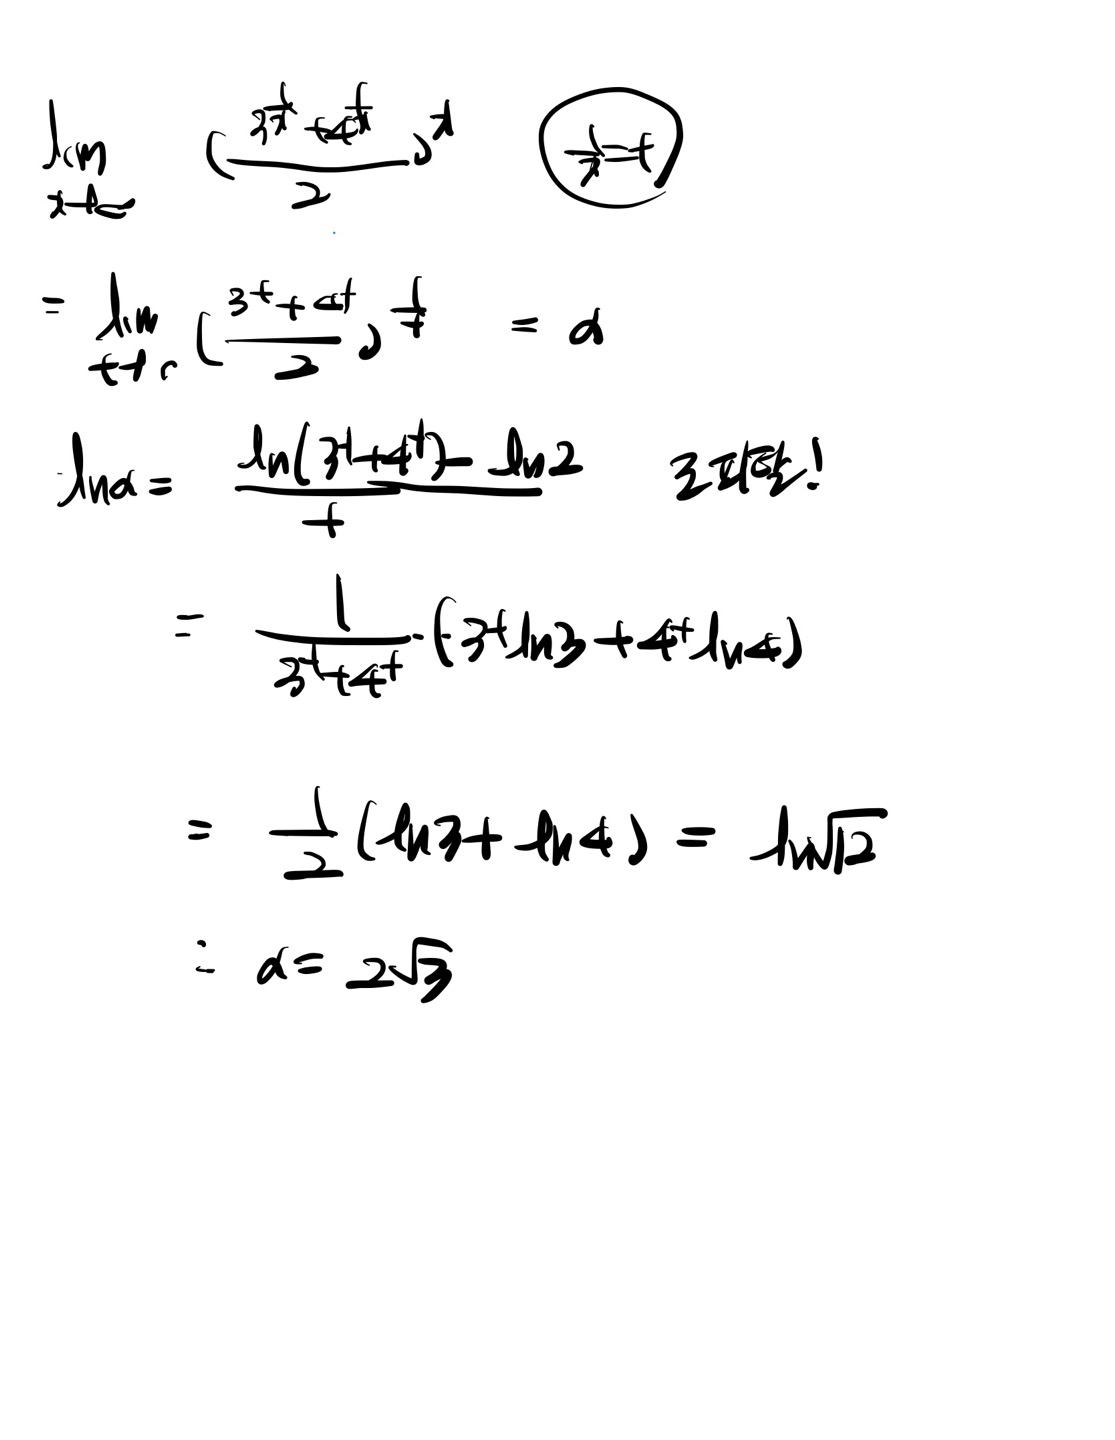 lim x→∞ ( (3^(1/x) + 4^(1/x)) / 2 )^x    1/x = t
= lim t→0 ( (3^t + 4^t) / 2 )^(1/t) = α
lnα = (ln(3^t + 4^t) - ln2) / t    로피탈!
= 1/(3^t + 4^t) · (3^t ln3 + 4^t ln4)
= 1/2 (ln3 + ln4) = ln√12
∴ α = 2√3